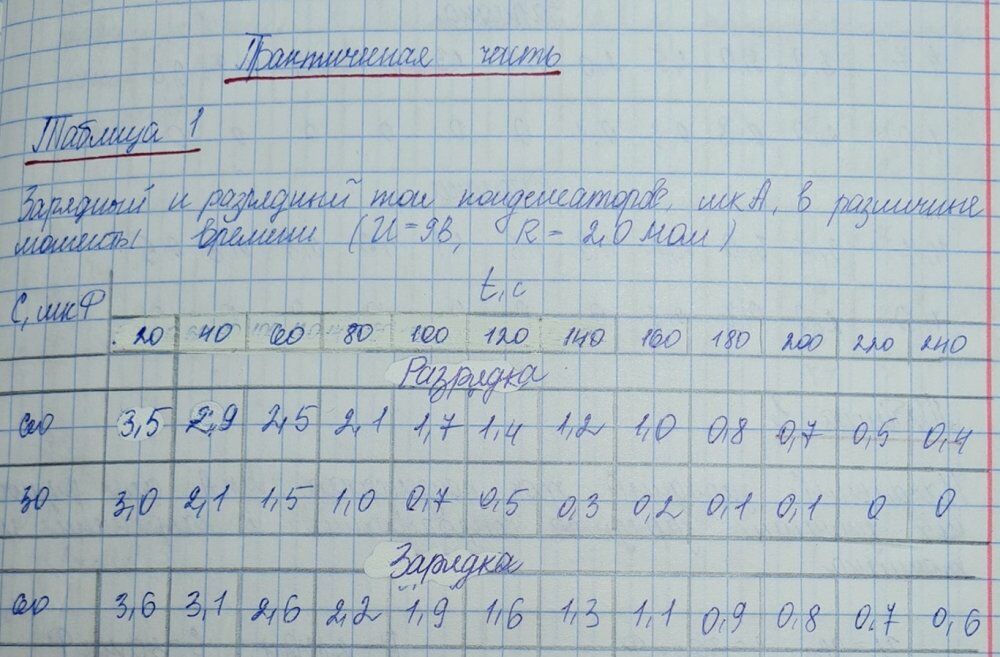 Практическая часть
Таблица 1
Зарядный и разрядный ток конденсаторов, мкА, в различные
моменты времени (U=9В, R=2,0 мОм)
С, мкФ t, с
20 40 60 80 100 120 140 160 180 200 220 240
Разрядка
60 3,5 2,9 2,5 2,1 1,7 1,4 1,2 1,0 0,8 0,7 0,5 0,4
30 3,0 2,1 1,5 1,0 0,7 0,5 0,3 0,2 0,1 0,1 0 0
Зарядка
60 3,6 3,1 2,6 2,2 1,9 1,6 1,3 1,1 0,9 0,8 0,7 0,6